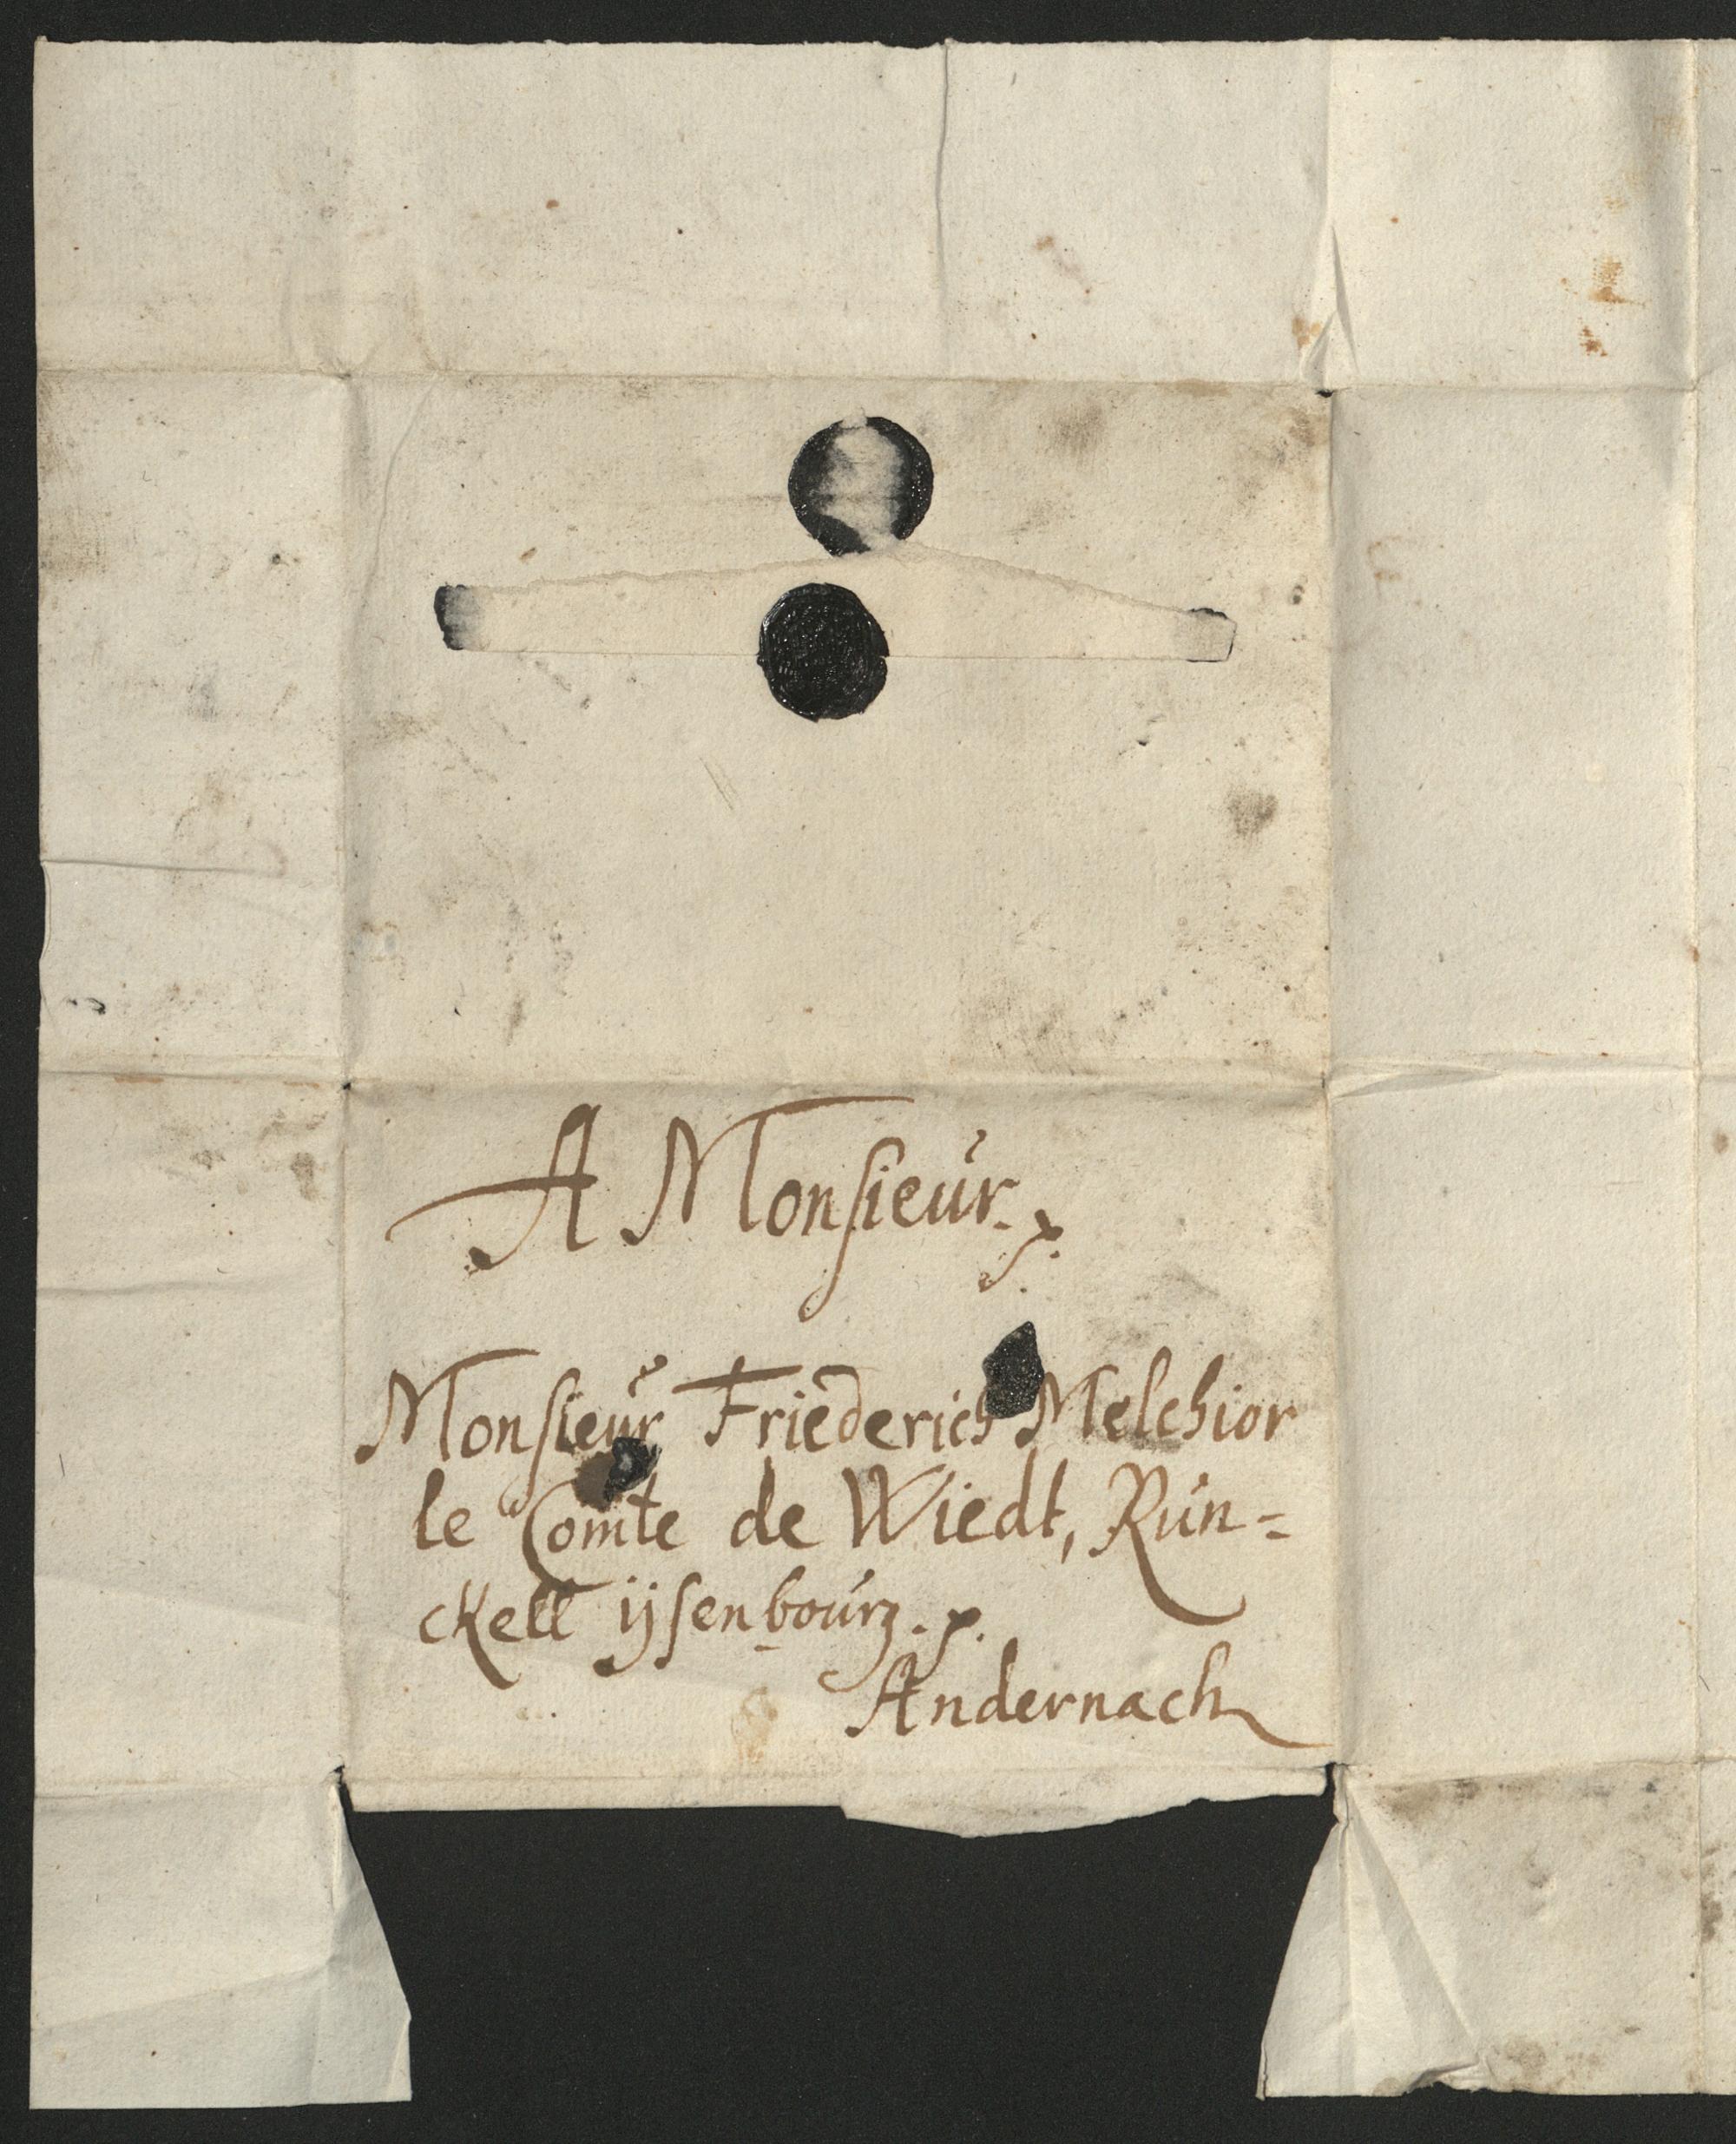 A Monsieur. p.
Monsieur Friederich Melchior
le Comte de Wiedt, Run=
ckell ijsenbourg. p.
Andernach